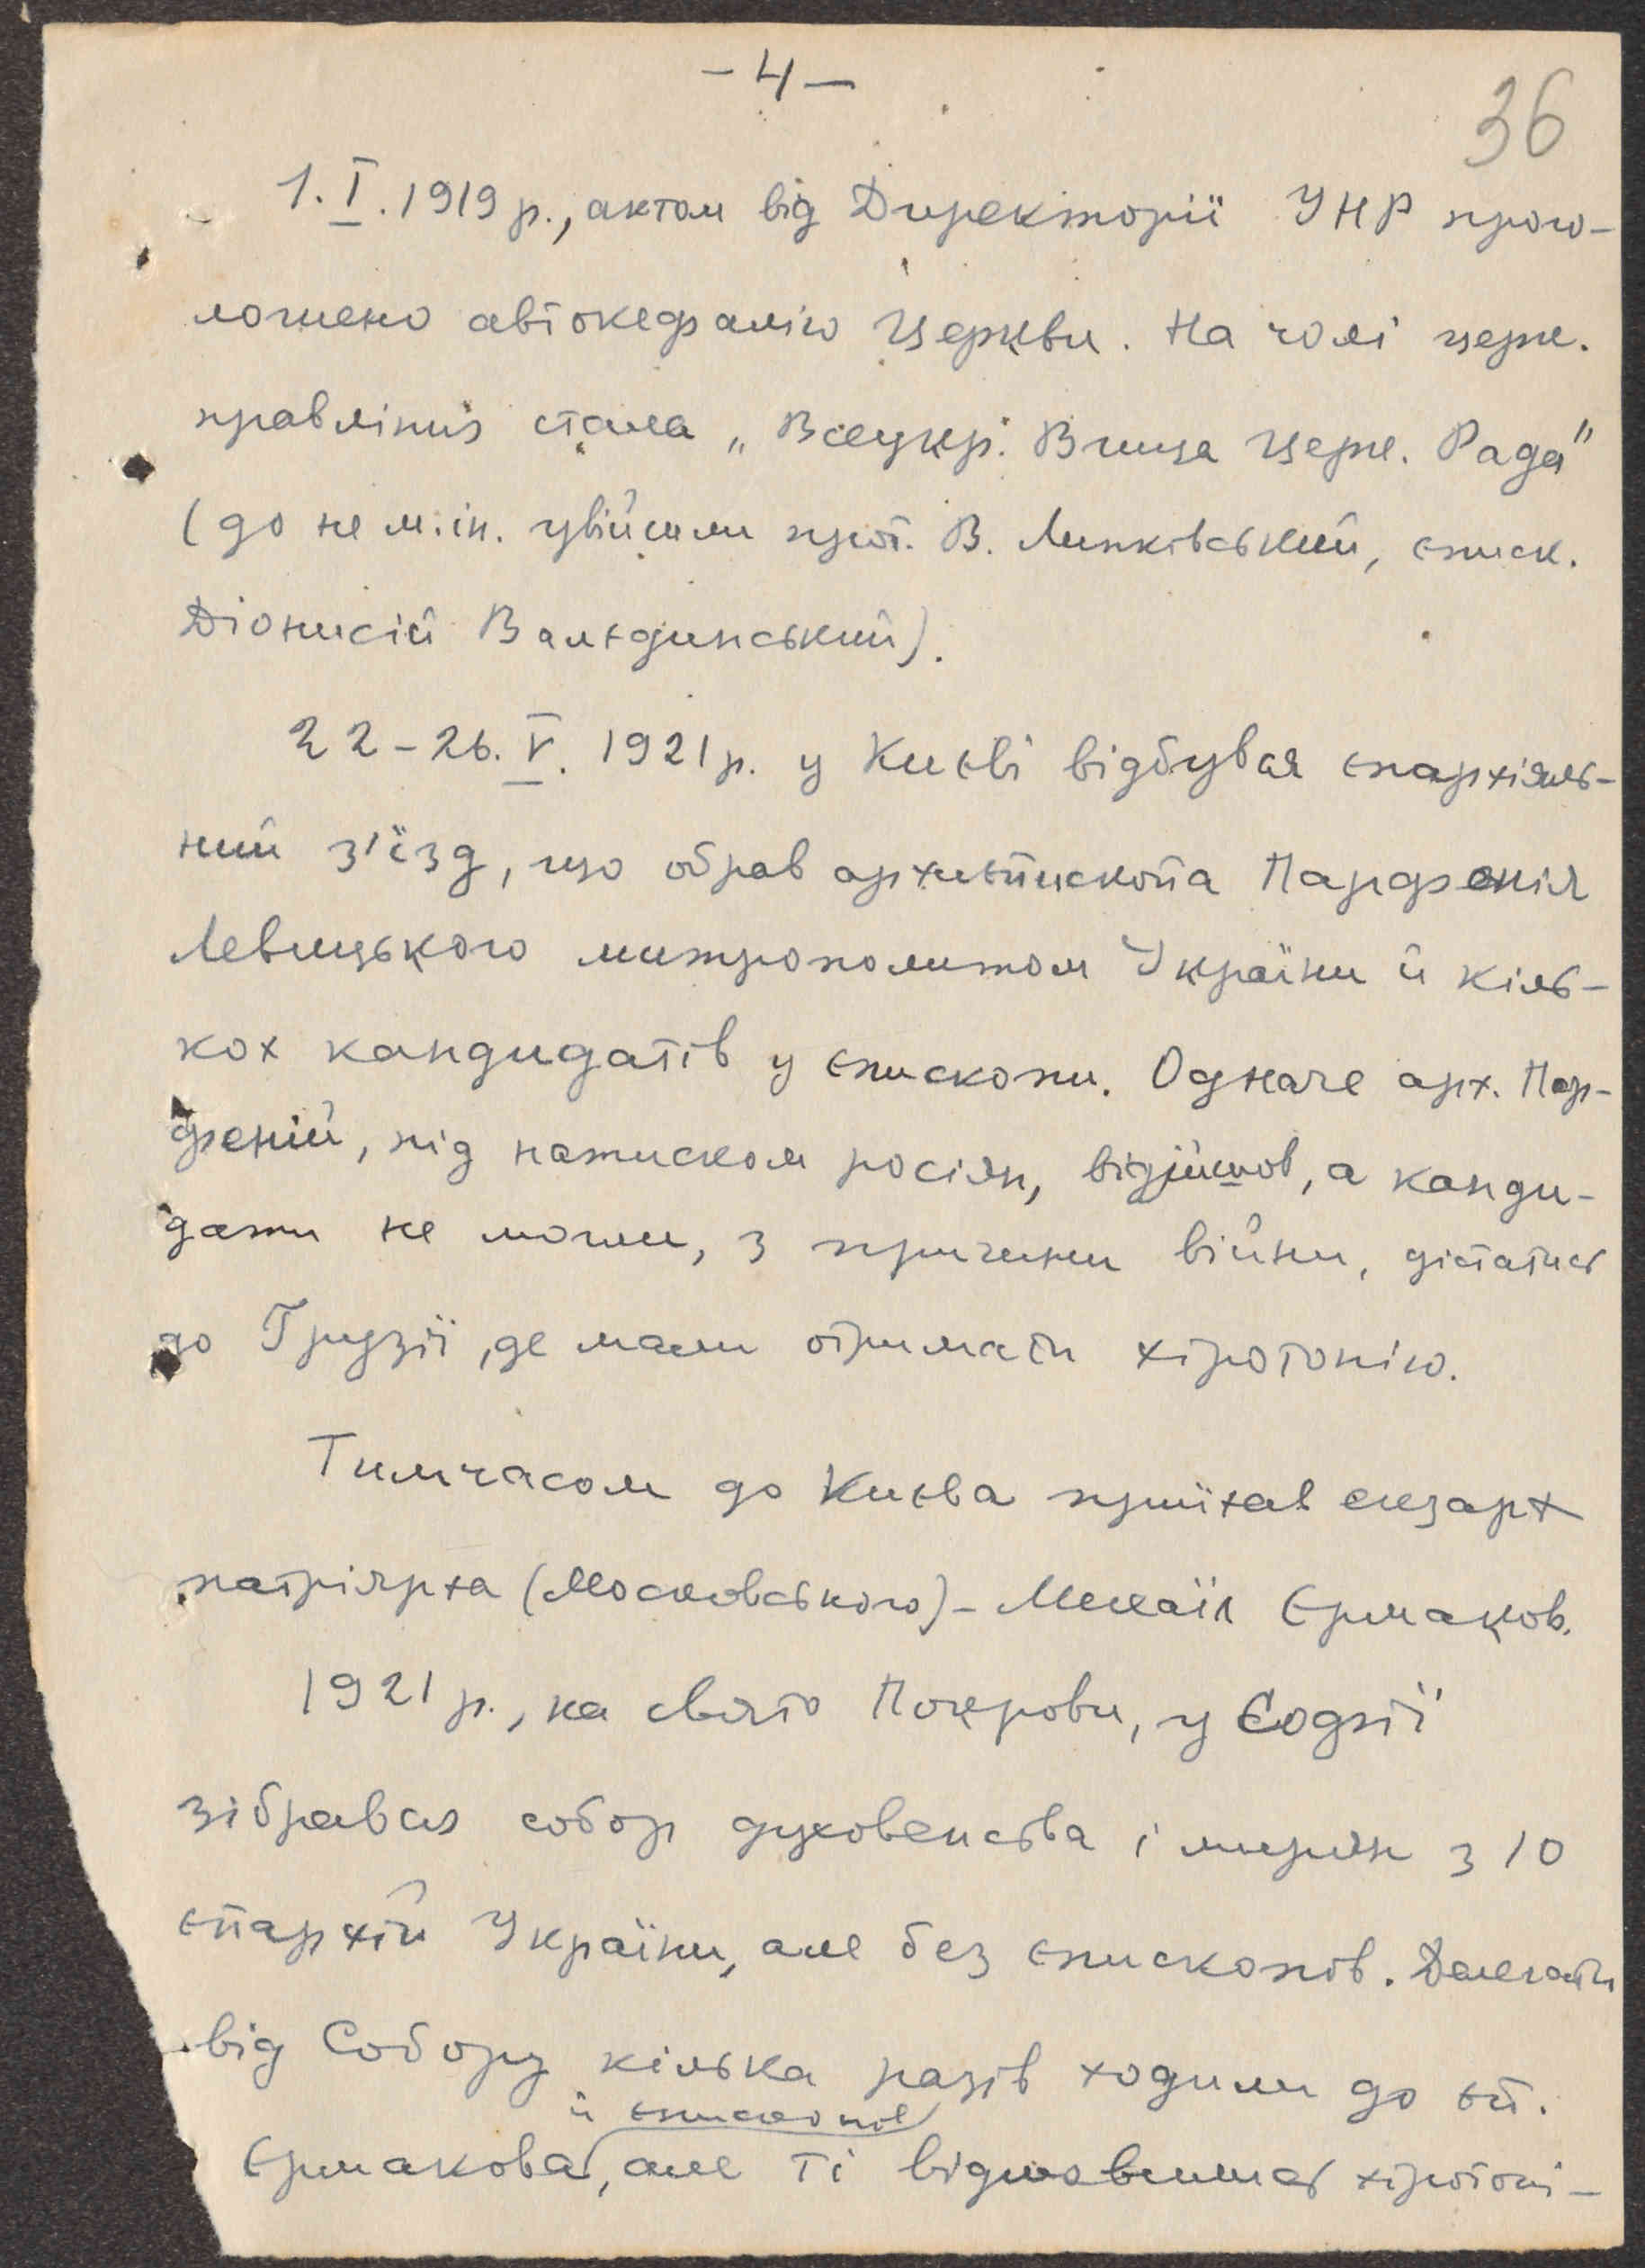 - 4 -
36
1. I. 1919 р., актом від Директорії УНР прого-
лошено автокефалію Церкви. На чолі церк.
правління стала „Всеукр. Вища Церк. Рада"
(до не м. ін. увійшли прот. В. Липківський, єписк.
Діонисій Валєдинський).
22-26. V. 1921 р. у Києві відбувся єпархіяль-
ний з'їзд, що обрав архиєпископа Парфенія
Левицького митрополитом України й кіль-
кох кандидатів у єпископи. Одначе арх. Пар-
феній, під натиском росіян, відійшов, а канди-
дати не могли, з причини війни, дістатись
до Грузії, де мали отримати хіротонію.
Тимчасом до Києва приїхав екзарх
патріярха (Московського) - Михаїл Єрмаков.
1921 р., на свято Покрови, у Софії
зібрався собор духовенства і мирян з 10
єпархій України, але без єпископів. Делегати
від Собору кілька разів ходили до еп.
й єпископів
Єрмакова, але ті відмовились хіротоні-